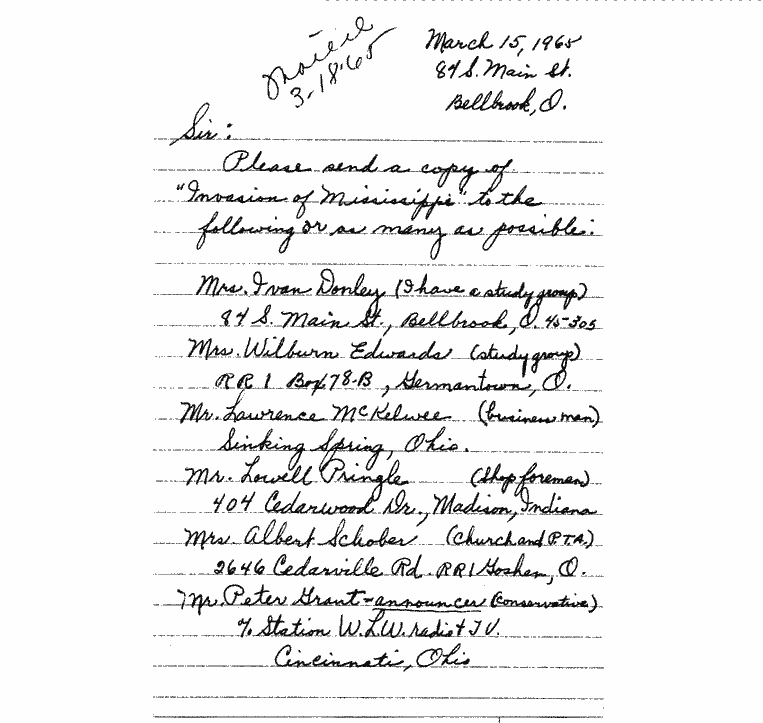 Mailed
3-18-65
March 15, 1965
84 S. Main St.
Bellbrook, O.
Sir:
Please send a copy of
"Invasion of Mississippi" to the
following or as many as possible:
Mrs. Ivan Donley (I have a study group)
84 S. Main St., Bellbrook, O. 45305
Mrs. Wilburn Edwards (study group)
RR 1 Box 78-B, Germantown, O.
Mr. Lawrence McKelwee (business man)
Sinking Spring, Ohio.
Mr. Lowell Pringle (Shop foreman)
404 Cedarwood Dr., Madison, Indiana
Mrs. Albert Schober (Church and P.T.A.)
2646 Cedarville Rd. RR1 Goshen, O.
Mr. Peter Grant - announcer (conservative)
% Station W.L.W. radio & T.V.
Cincinnati, Ohio